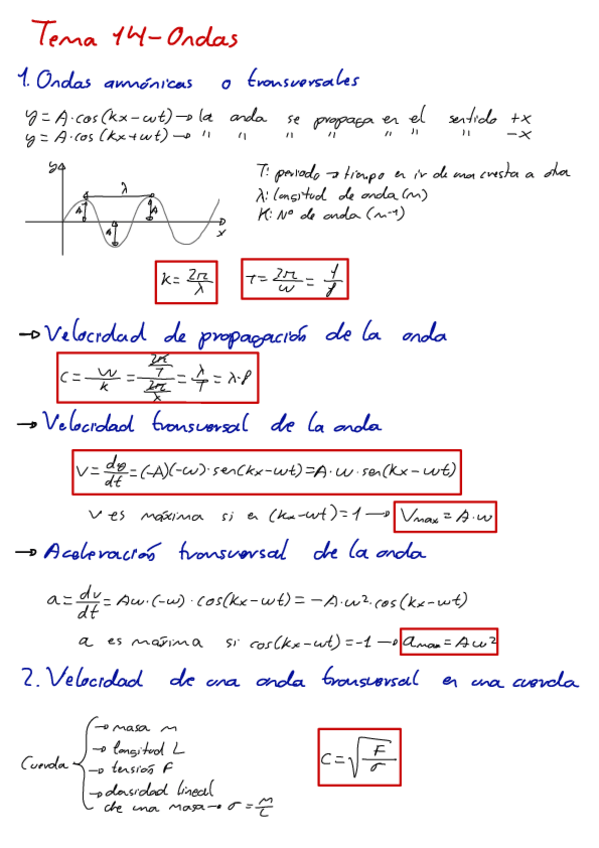 Tema 14-Ondas
1. Ondas armónicas o transversales
y = A·cos(kx-wt) → la onda se propaga en el sentido +x
y = A·cos(kx+wt) → " " " " " " " -x
y
λ
A A
A
x
T: periodo → tiempo en ir de una cresta a otra
λ: longitud de onda (m)
K: Nº de onda (m⁻¹)
k = 2π/λ
T = 2π/w = 1/f
→ Velocidad de propagación de la onda
c = w/k = (2π/T)/(2π/λ) = λ/T = λ·f
→ Velocidad transversal de la onda
v = dy/dt = (-A)(-w)·sen(kx-wt) = A·w·sen(kx-wt)
v es máxima si en (kx-wt) = 1 → Vmax = A·w
→ Aceleración transversal de la onda
a = dv/dt = Aw·(-w)·cos(kx-wt) = -A·w²·cos(kx-wt)
a es máxima si cos(kx-wt) = -1 → amax = Aw²
2. Velocidad de una onda transversal en una cuerda
Cuerda
→ masa m
→ longitud L
→ tensión F
→ densidad lineal
de una masa → σ = m/L
c = √(F/σ)